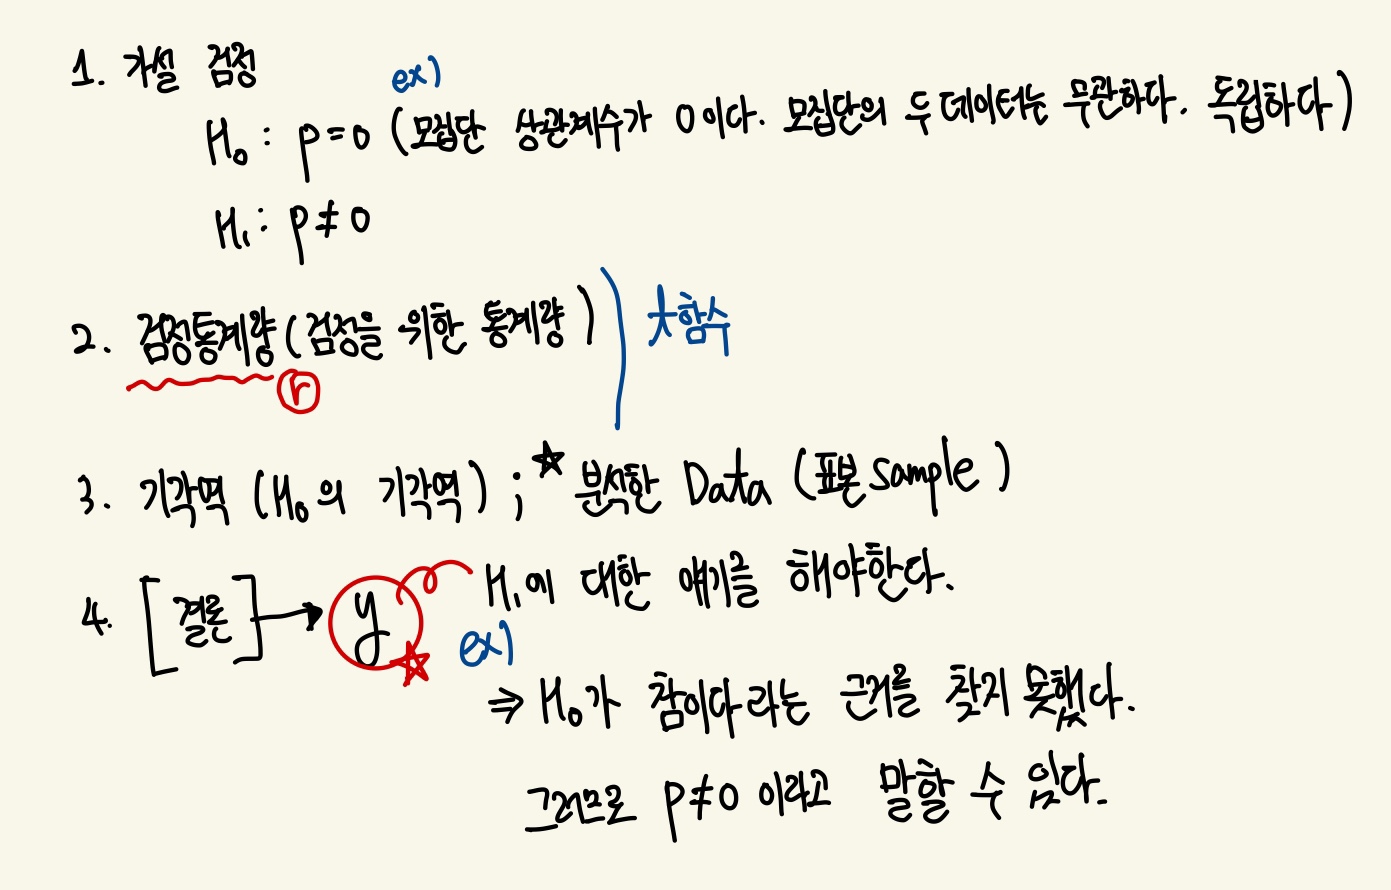 1. 가설 검정
ex)
H₀ : p=0 (모집단 상관계수가 0이다. 모집단의 두 데이터는 무관하다. 독립하다)
H₁ : p≠0
2. 검정통계량 (검정을 위한 통계량) 大함수
r
3. 기각역 (H₀의 기각역) ; ☆ 분석한 Data (표본 sample)
4. [결론] → y ☆ H₁에 대한 얘기를 해야한다.
ex)
⇒ H₀가 참이다 라는 근거를 찾지 못했다.
그러므로 p≠0 이라고 말할 수 있다.